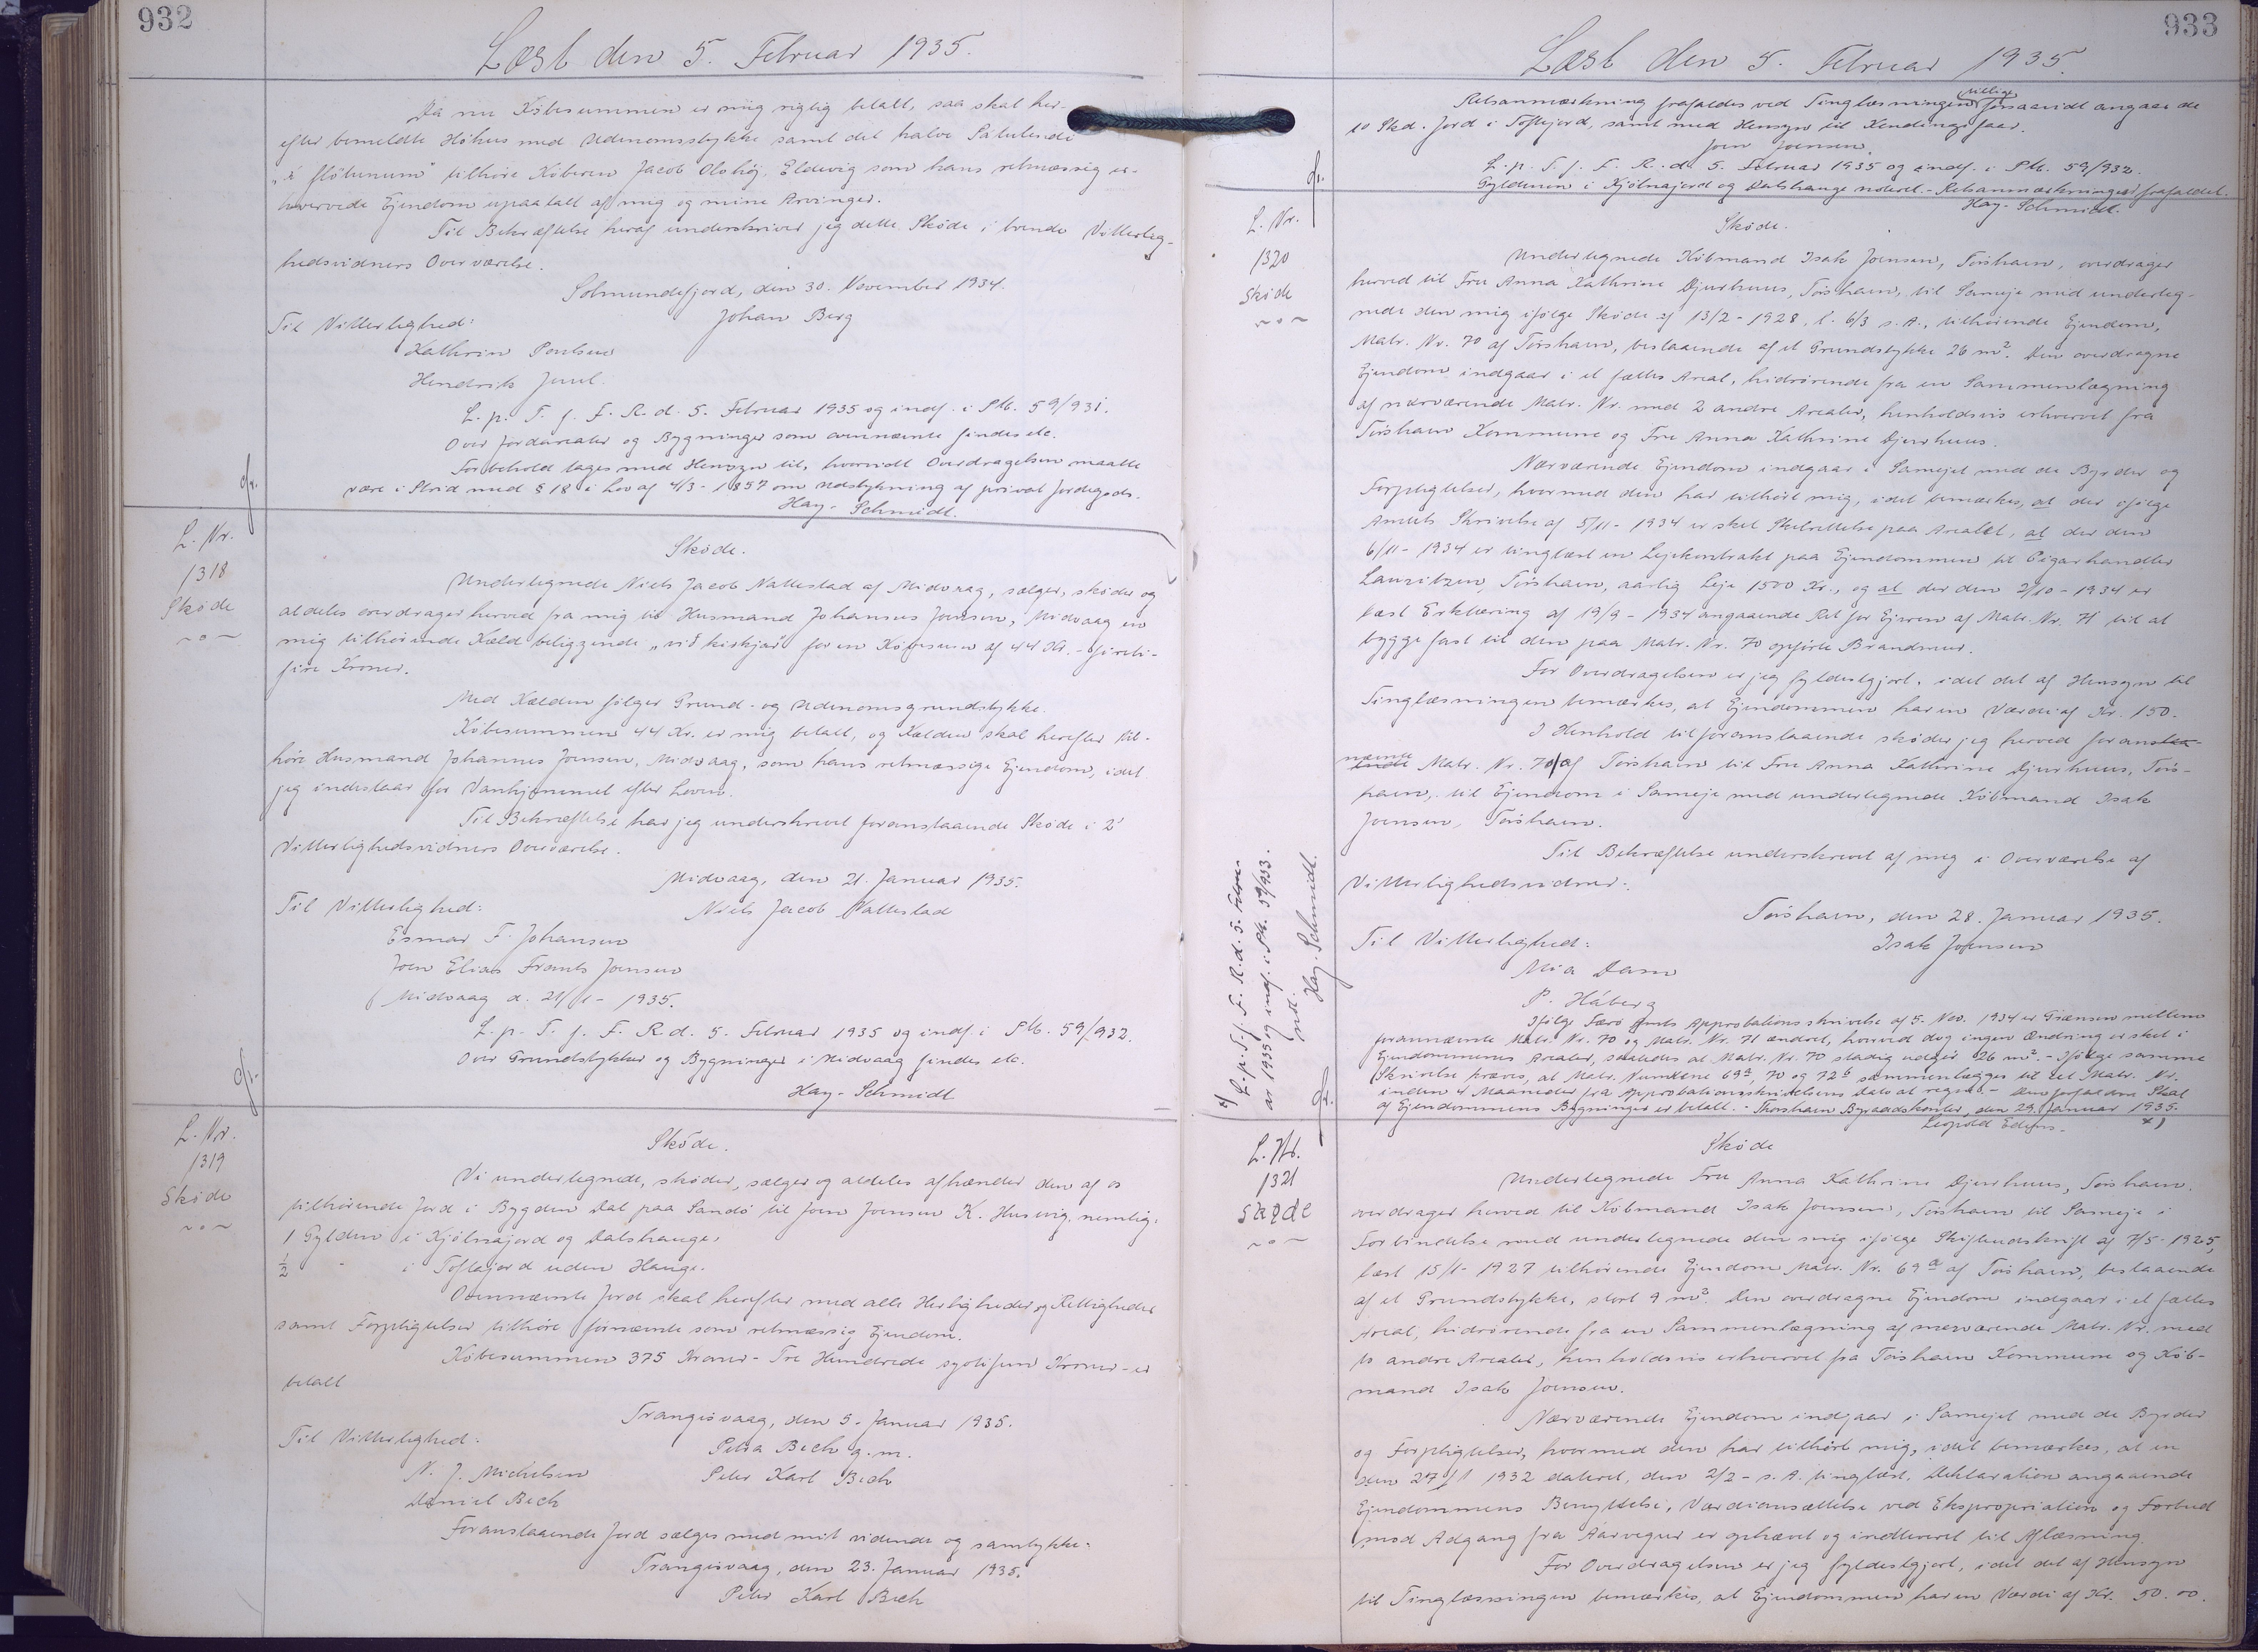 932
Læst den 5. Februar 1935.
Da nu Købesummen er mig rigtig betalt, saa skal her-
efter bemeldte Høhus med Udenomsstykke samt det halve
tilhøre Køberen Jacob Eldevig som hans retmæssig er-
hvervede Ejendom upaatalt af mig og mine Arvinger.
Til Bekræftelse heraf underskriver jeg dette Skøde i tvende Vitterlig-
hedsvidners Overværelse.
Solmundefjord, den 30. November 1934.
Til Vitterlighed: Johan Berg
Kathrin Poulsen
Hendrik Juul.
L. p. T. f. F. R. d. 5. Februar 1935 og indf. i Ptb. 59/931.
Over Jordarealer og Bygninger som ovennævnte findes etc.
Forbehold tages med Hensyn til, hvorvidt Overdragelsen maatte
være i Strid med § 18 i Lov af 4/3-1857 om Udstykning af privat Jordegods.
Hay-Schmidt.
L. Nr.
1318
Skøde
Skøde.
Undertegnede Niels Jacob Nattestad af Midvaag, sælger, skøder og
aldeles overdrager herved fra mig til Husmand Johannes Joensen, Midvaag en
mig tilhørende Kæld beliggende „við kirkjar" for en Købesum af 44 Kr. - fireti-
fire Kroner.
Med Kælden følger Grund- og Udenomsgrundstykke.
Købesummen 44 Kr. er mig betalt, og Kælden skal herefter til-
høre Husmand Johannes Joensen, Midvaag, som hans retmæssige Ejendom, idet
jeg indestaar for Vanhjemmel efter Loven.
Til Bekræftelse har jeg underskrevet foranstaaende Skøde i 2
Vitterlighedsvidners Overværelse.
Midvaag, den 21. Januar 1935.
Til Vitterlighed: Niels Jacob Nattestad
Esmar F. Johansen
Joen Elias Frants Joensen
Midvaag d. 21/1- 1935.
L. p. T. f. F. R. d. 5. Februar 1935 og indf. i Ptb. 59/932.
Over Grundstykker og Bygninger i Midvaag findes etc.
Hay-Schmidt
L. Nr.
1319
Skøde
Skøde.
Vi undertegnede, skøder, sælger og aldeles afhænder den af os
tilhørende Jord i Bygden Dal paa Sandø til Joen Joensen K. Husevig, nemlig:
1 Gylden i Kjølnajord og Dalshauge.
½ - i Toftajord uden Hauge.
Ovennævnte Jord skal herefter med alle Herligheder og Rettigheder
samt Forpligtelser tilhøre fornævnte som retmæssig Ejendom.
Købesummen 375 Kroner - Tre Hundrede syvtifem Kroner - er
betalt
Trangisvaag, den 5. Januar 1935.
Til Vitterlighed: Petra Bech g. m.
N. J. Michelsen Peter Karl Bech
Daniel Bech
Foranstaaende Jord sælges med mit vidende og samtykke.
Trangisvaag, den 23. Januar 1935.
Peter Karl Bech
933
Læst den 5. Februar 1935.
Retsanmærkning frafaldes ved Tinglæsningen tillige forsaavidt angaar de
10 Skd. Jord i Toftejord, samt med Hensyn til Kendingsfaar.
Joen Joensen.
L. p. T. f. F. R. d. 5. Februar 1935 og indf. i Ptb. 59/932.
Gyldenen i Kjølnajord og Dalshauge noteret. - Retsanmærkningen frafaldet.
Hay-Schmidt.
L. Nr.
1320
Skøde
Skøde.
Undertegnede Købmand Isak Joensen, Tórshavn, overdrager
herved til Fru Anna Kathrine Djurhuus, Tórshavn, til Sameje med underteg-
nede den mig ifølge Skøde af 13/2-1928, l. 6/3 s. A., tilhørende Ejendom,
Matr. Nr. 70 af Tórshavn, bestaaende af et Grundstykke 26 m². Den overdragne
Ejendom indgaar i et fælles Areal, hidrørende fra en Sammenlægning
af nærværende Matr. Nr. med 2 andre Arealer, henholdsvis erhvervet fra
Tórshavn Kommune og Fru Anna Kathrine Djurhuus.
Nærværende Ejendom indgaar i Samejet med de Byrder og
Forpligtelser, hvormed den har tilhørt mig, idet bemærkes, at der ifølge
Amtets Skrivelse af 5/11-1934 er sket Skelrettelse paa Arealet, at der den
6/11-1934 er tinglæst en Lejekontrakt paa Ejendommen til Cigarhandler
Lauritzen, Tórshavn, aarlig Leje 1500 Kr., og at der den 2/10-1934 er
læst Erklæring af 19/9-1934 angaaende Ret for Ejeren af Matr. Nr. 71 til at
bygge fast til den paa Matr. Nr. 70 opførte Brandmur.
For Overdragelsen er jeg fyldestgjort, idet det af Hensyn til
Tinglæsningen bemærkes, at Ejendommen har en Værdi af Kr. 150.
I Henhold til foranstaaende skøder jeg herved foran-
nævnte Matr. Nr. 70 af Tórshavn til Fru Anna Kathrine Djurhuus, Tórs-
havn, til Ejendom i Sameje med undertegnede Købmand Isak
Joensen, Tórshavn.
Til Bekræftelse underskrevet af mig i Overværelse af
Vitterlighedsvidner.
Tórshavn, den 28. Januar 1935.
Til Vitterlighed: Isak Joensen
Mia Dam
P. Háberg
Ifølge Færø Amts Approbationsskrivelse af 5. Nov. 1934 er Grænsen mellem
forannævnte Matr. Nr. 70 og Matr. Nr. 71 ændret, hvorved dog ingen Ændring er sket i
Ejendommenes Arealer, saaledes at Matr. Nr. 70 stadig udgør 26 m². - Ifølge samme
Skrivelse kræves, at Matr. Numrene 69a, 70 og 72b sammenlægges til eet Matr. Nr.
inden 4 Maaneder fra Approbationsskrivelsens Dato at regne. - Den forfaldne Skat
af Ejendommens Bygninger er betalt. - Thorshavn Byraadskontor, den 29. Januar 1935.
Leopold x)
x) L. p. T. f. F. R. d. 5. Febru-
ar 1935 og indf. i Ptb. 59/933.
not.
Hay-Schmidt.
L. Nr.
1321
Skøde
Skøde
Undertegnede Fru Anna Kathrine Djurhuus, Tórshavn,
overdrager herved til Købmand Isak Joensen, Tórshavn til Sameje i
Forbindelse med undertegnede den mig ifølge Skifteudskrift af 7/5-1925,
læst 15/1-1927 tilhørende Ejendom Matr. Nr. 69a af Tórshavn, bestaaende
af et Grundstykke, stort 9 m². Den overdragne Ejendom indgaar i et fælles
Areal, hidrørende fra en Sammenlægning af nærværende Matr. Nr. med
to andre Arealer, henholdsvis erhvervet fra Tórshavn Kommune og Køb-
mand Isak Joensen.
Nærværende Ejendom indgaar i Samejet med de Byrder
og Forpligtelser, hvormed den har tilhørt mig, idet bemærkes, at en
den 27/1 1932 dateret, den 2/2- s. A. tinglæst, Deklaration angaaende
Ejendommens Benyttelse, Værdiansættelse ved Ekspropriation og Forbud
mod Adgang fra Áarvegur er ophævet og indleveret til Aflæsning.
For Overdragelsen er jeg fyldestgjort, idet det af Hensyn
til Tinglæsningen bemærkes, at Ejendommen har en Værdi af Kr. 50.00.